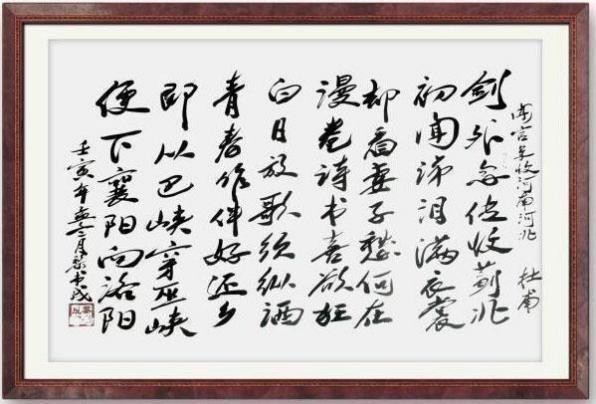 闻官军收河南河北 杜甫
剑外忽传收蓟北
初闻涕泪满衣裳
却看妻子愁何在
漫卷诗书喜欲狂
白日放歌须纵酒
青春作伴好还乡
即从巴峡穿巫峡
便下襄阳向洛阳
壬寅年 月 书